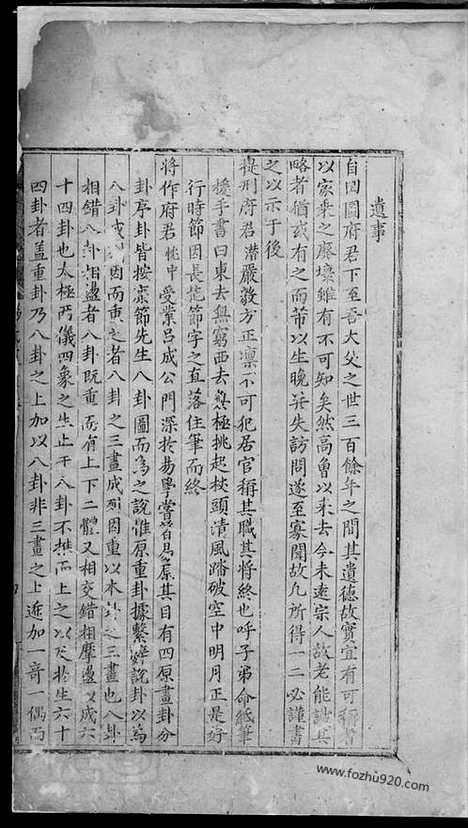 遺事
自四園府君下至吾大父之世三百餘年之間其遺德故實宜有可稱者
以家乘之廢壞雖有不可知矣然高曾以來去今未遠宗人故老能誦其
略者猶或有之而芾以生晚並失訪問遂至寡聞故凡所得一二必謹書
之以示于後
提刑府君潛嚴毅方正凜不可犯居官稱其職其將終也呼子弟命紙筆
擡手書曰東去無窮西去無極挑起杖頭清風踏破空中明月正是好
行時節因長能節字之直落住筆而終
將作府君 受業呂成公門深於易學嘗 其目有四原畫卦分
卦序卦皆按 節先生八卦圖而為之說惟原重卦據繫辭說卦以為
八卦成列因而重之者八卦之三畫成列因重以本卦之三畫也八卦
相錯八卦相盪者八卦既重而有上下二體又相交錯相摩盪以成六
十四卦也太極兩儀四象之生止于八卦不 而上之以 於生六十
四卦者蓋重卦乃八卦之上加以八卦非三畫之上遞加一奇一偶而
www.fozhu920.com